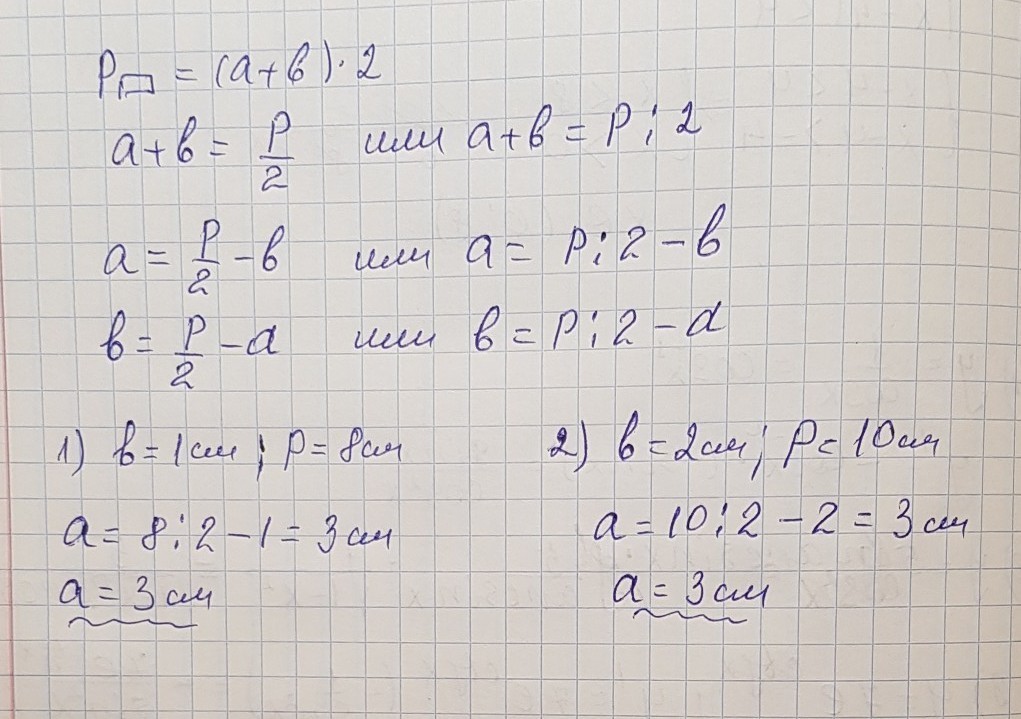 P▭ = (a+b)·2
a+b = P/2 или a+b = P:2
a = P/2 - b или a = P:2 - b
b = P/2 - a или b = P:2 - a
1) b = 1 см; P = 8 см 2) b = 2 см; P = 10 см
a = 8:2 - 1 = 3 см a = 10:2 - 2 = 3 см
a = 3 см a = 3 см